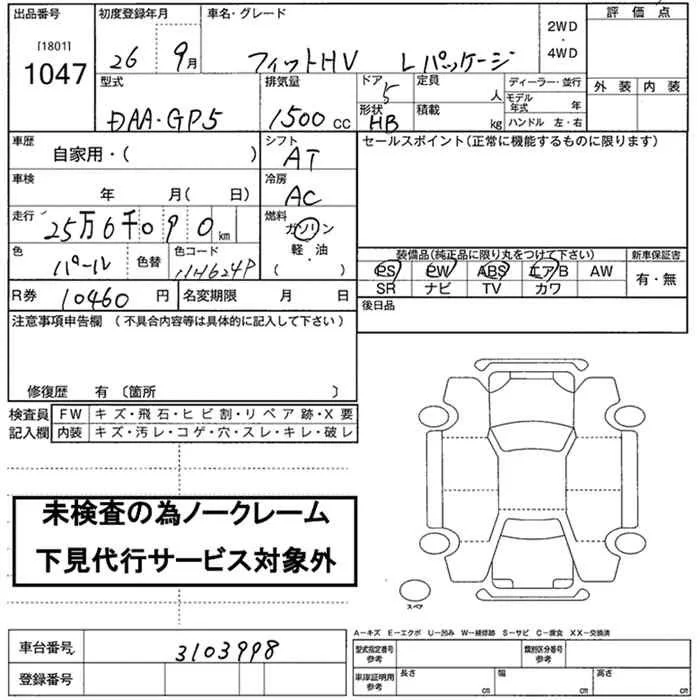 出品番号 初度登録年月 車名・グレード 評価点
[1801]
1047
26 9月 フィットHV Lパッケージ 2WD・4WD
型式 排気量 ドア 定員 ディーラー・並行 外装 内装
DAA-GP5 1500cc 5 人 モデル年式 年
形状 積載 HB kg ハンドル 左・右
車歴 自家用・( ) シフト AT セールスポイント(正常に機能するものに限ります)
車検 年 月( 日) 冷房 AC
走行 25万6千090km 燃料 ガソリン・軽油・( )
色 パール 色替 色コード NH624P
装備品(純正品に限り丸をつけて下さい) 新車保証書
PS PW ABS エアB AW 有・無
SR ナビ TV カワ
R券 10460円 名変期限 月 日 後日品
注意事項申告欄(不具合内容等は具体的に記入して下さい)
修復歴 有〔箇所 〕
検査員 FW キズ・飛石・ヒビ割・リペア跡・X要
記入欄 内装 キズ・汚レ・コゲ・穴・スレ・キレ・破レ
未検査の為ノークレーム
下見代行サービス対象外
スペア
A-キズ E-エクボ U-凹み W-補修跡 S-サビ C-腐食 XX-交換済
車台番号 3103998 型式指定番号 参考 類別区分番号 参考
登録番号 車庫証明用 参考 長さ cm 幅 cm 高さ cm